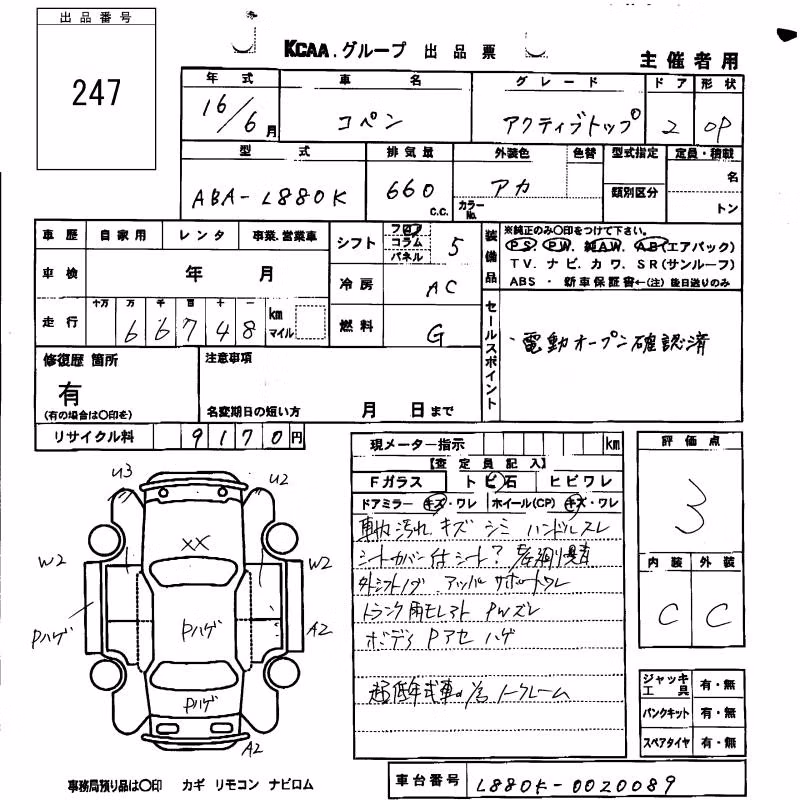 出品番号
247
KCAA.グループ 出品票
主催者用
年式 車名 グレード ドア 形状
16/6月 コペン アクティブトップ 2 OP
型式 排気量 外装色 色替 型式指定 定員・積載
ABA-L880K 660 c.c. アカ カラーNo. 類別区分 名 トン
車歴 自家用 レンタ 事業.営業車
車検 年 月
走行 十万 万 千 百 十 一
66748 km マイル
シフト フロア コラム パネル 5
冷房 AC
燃料 G
装備品
※純正のみ〇印をつけて下さい。
PS. PW. 純AW. AB(エアバック)
TV. ナビ. カワ. SR(サンルーフ)
ABS ・ 新車保証書←(注)後日送りのみ
セールスポイント
・電動オープン確認済
修復歴 箇所
有
(有の場合は〇印を)
注意事項
名変期日の短い方 月 日まで
リサイクル料 9170円
現メーター指示 km
【査定員記入】
Fガラス トビ石 ヒビワレ
ドアミラー キズ・ワレ ホイール(CP) キズ・ワレ
車内汚れ キズ シミ ハンドルスレ
シートカバー付 シート?
外シフトノブ アッパーサポート
トランク用モレスト PWズレ
ボディ Pアセ ハゲ
超低年式車の為ノークレーム
評価点
3
内装 外装
C C
U3 U2
XX
W2 W2
Pハゲ Pハゲ A2
Pハゲ
A2
ジャッキ工具 有・無
パンクキット 有・無
スペアタイヤ 有・無
事務局預り品は〇印 カギ リモコン ナビロム
車台番号 L880K-0020089